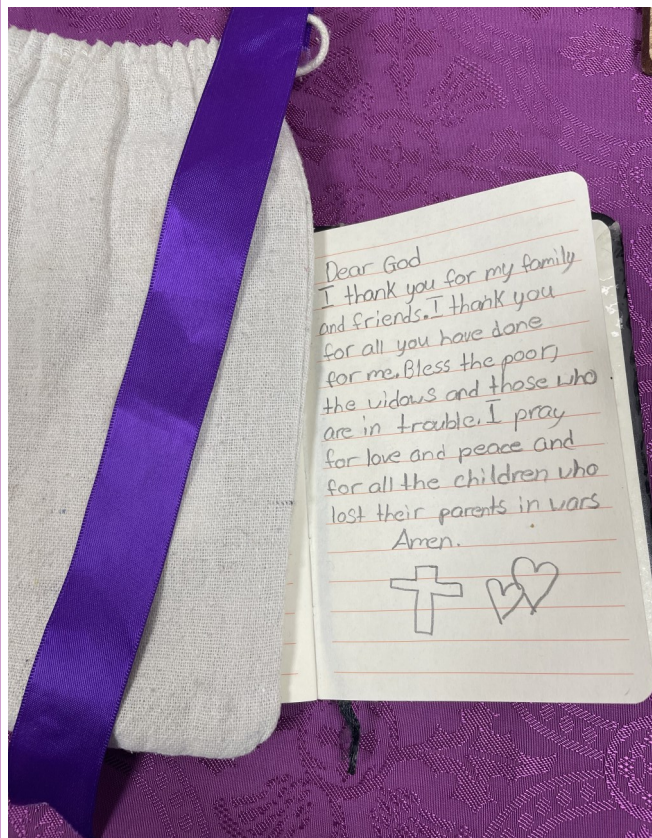 Dear God
I thank you for my family
and friends. I thank you
for all you have done
for me. Bless the poor,
the vidows and those who
are in trouble. I pray
for love and peace and
for all the children who
lost their parents in vars
Amen.